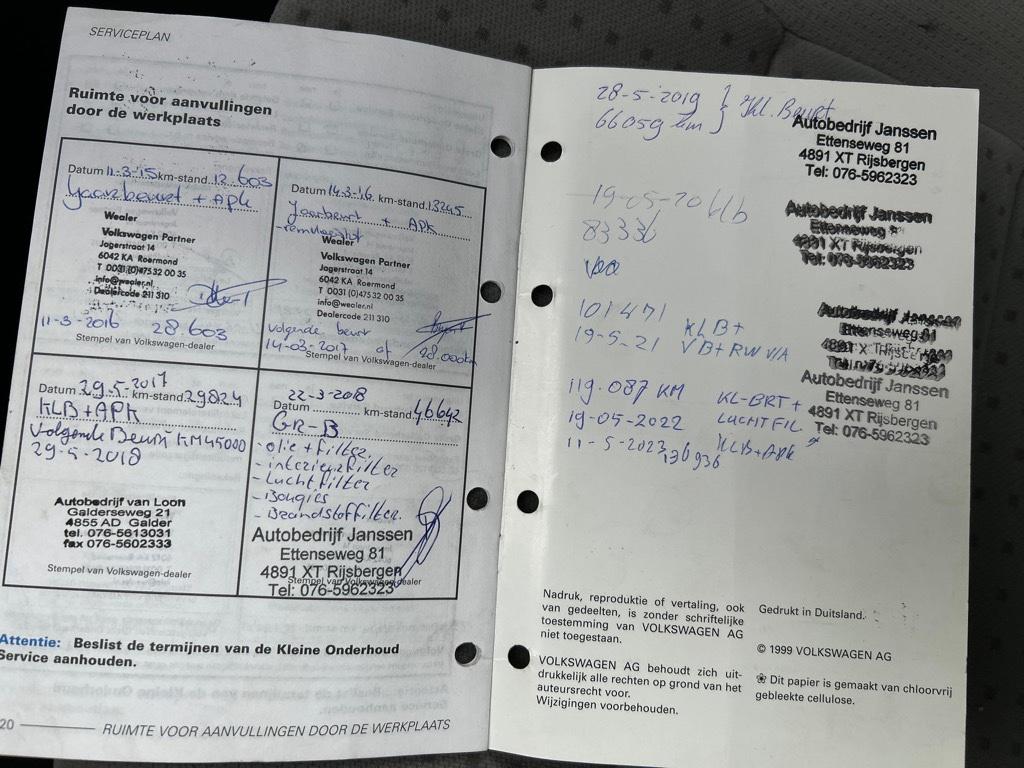 SERVICEPLAN
Ruimte voor aanvullingen
door de werkplaats
Datum 11-3-15 km-stand 12.603
Jaarbeurt + APK
Wealer
Volkswagen Partner
Jagerstraat 14
6042 KA Roermond
T 0031 (0)475 32 00 35
info@wealer.nl
Dealercode 211 310
11-3-2016 28.603
Stempel van Volkswagen-dealer
Datum 14-3-16 km-stand 13245
Jaarbeurt + APK
Wealer
Volkswagen Partner
Jagerstraat 14
6042 KA Roermond
T 0031 (0)475 32 00 35
info@wealer.nl
Dealercode 211 310
volgende beurt
14-03-2017 of 28.000km
Stempel van Volkswagen-dealer
Datum 29.5-2017 km-stand 29824
KLB+APK
Volgende Beurt KM45000
29-5-2018
Autobedrijf van Loon
Galderseweg 21
4855 AD Galder
tel. 076-5613031
fax 076-5602333
Stempel van Volkswagen-dealer
22-3-2018
Datum km-stand 46642
GR-B
- olie + filter
- interieurfilter
- Luchtfilter
- Bougies
- Brandstoffilter.
Autobedrijf Janssen
Ettenseweg 81
4891 XT Rijsbergen
Stempel van Volkswagen-dealer
Tel: 076-5962323
Attentie: Beslist de termijnen van de Kleine Onderhoud
Service aanhouden.
20 RUIMTE VOOR AANVULLINGEN DOOR DE WERKPLAATS
28-5-2019 } Kl. Beurt
66059 km
Autobedrijf Janssen
Ettenseweg 81
4891 XT Rijsbergen
Tel: 076-5962323
19-05-20 klb
Autobedrijf Janssen
Ettenseweg
4891 XT Rijsbergen
Tel: 076-5962323
101471 KLB+
19-5-21 VB+RW V/A
Autobedrijf Janssen
Ettenseweg 81
119.087 KM KL-BRT +
19-05-2022 LUCHTFIL
11-5-2023 136936 KLB+APK
Autobedrijf Janssen
Ettenseweg 81
4891 XT Rijsbergen
Tel: 076-5962323
Nadruk, reproduktie of vertaling, ook
van gedeelten, is zonder schriftelijke
toestemming van VOLKSWAGEN AG
niet toegestaan.
VOLKSWAGEN AG behoudt zich uit-
drukkelijk alle rechten op grond van het
auteursrecht voor.
Wijzigingen voorbehouden.
Gedrukt in Duitsland.
© 1999 VOLKSWAGEN AG
Dit papier is gemaakt van chloorvrij
gebleekte cellulose.